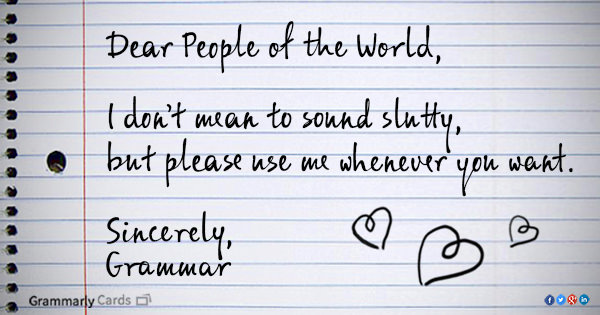 Dear People of the World,
I don't mean to sound slutty,
but please use me whenever you want.
Sincerely,
Grammar
Grammarly Cards